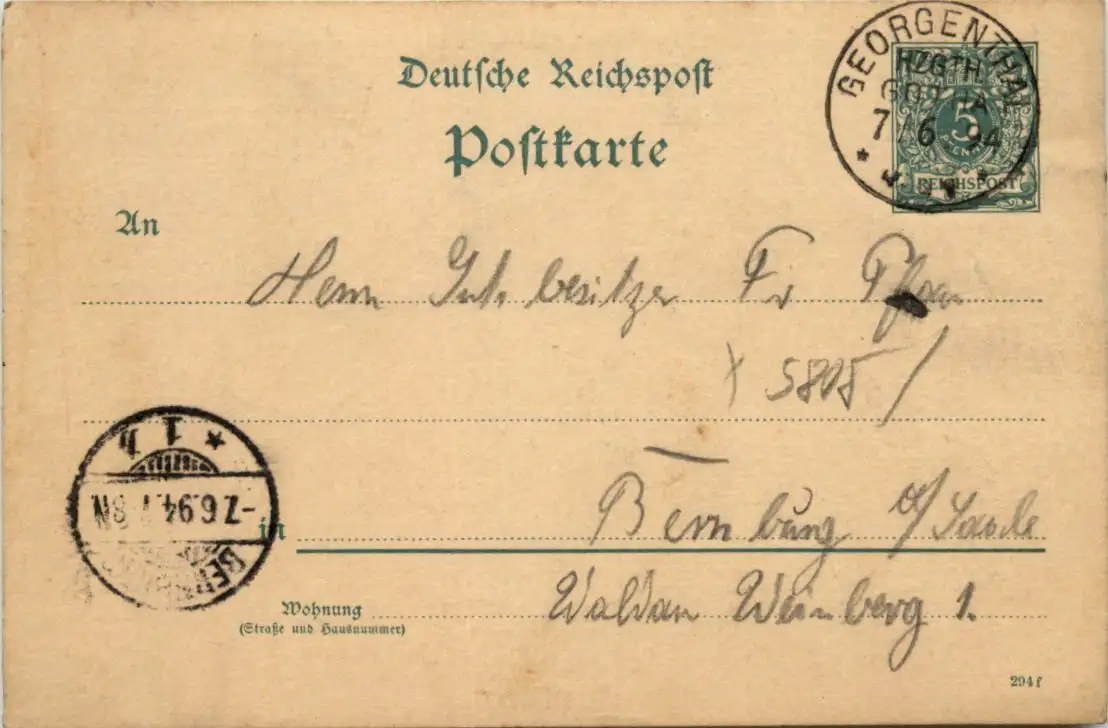 Deutsche Reichspost
Postkarte
GEORGENTHAL
HZGTH.
GOTHA
7/6 94
5
PFENNIG
REICHSPOST
An
Herrn Gutsbesitzer Fr
5805
1
-7.6.94. 7-8N
in Bernburg a/Saale
Waldau Weinberg 1.
Wohnung
(Straße und Hausnummer)
294 f